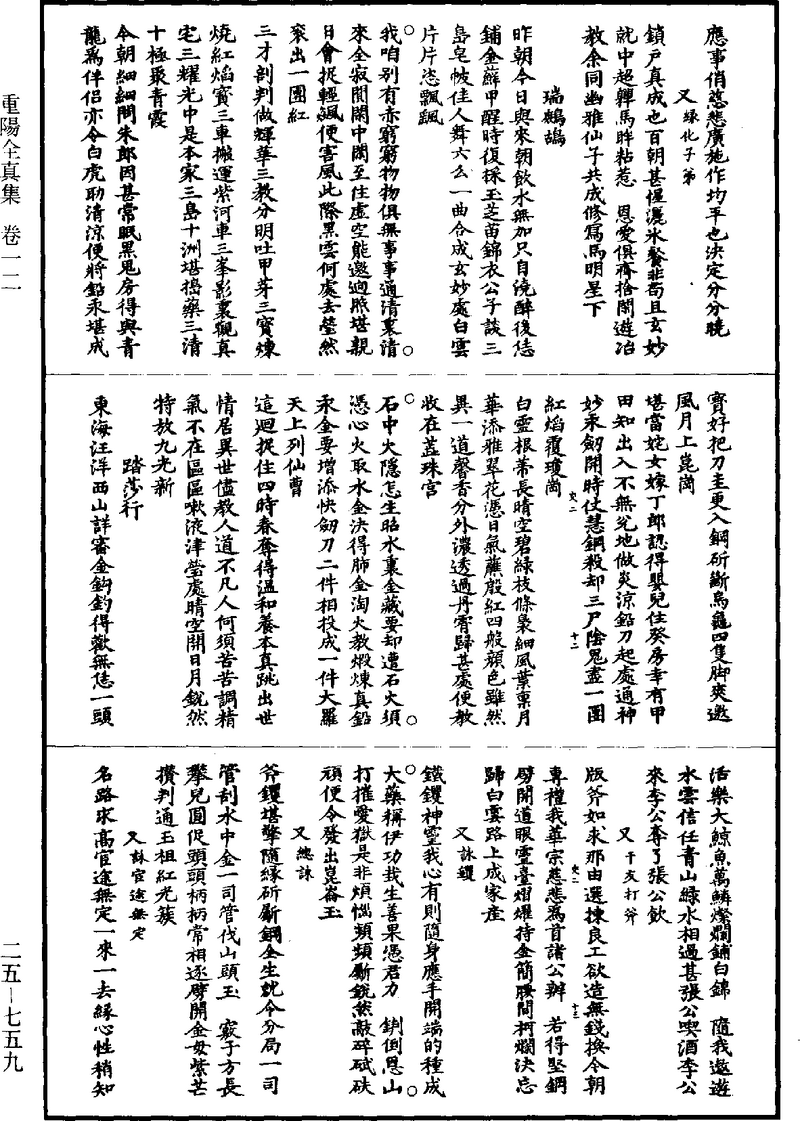 應事俏慈悲廣施作均平也決定分分曉
又 緣化子弟
鎖戶真成也百朝甚偓濃氷餐非苟且玄妙
就中趕騨馬眸粘惹 恩愛俱齊捨閑遊冶
敎余同幽雅仙子共成修寫馬明星下
瑞鷓鴣
昨朝今日與來朝飲水無加只自澆醉後恁
鋪金蘚甲醒時復採玉芝苗錦衣公子談三
島皂帔佳人舞六么一曲合成玄妙處白雲
片片恣飄颻
我咱别有赤窮窮物物俱無事事通清裏清
來全寂閴鬧中閑至住虛空能邀迥照堪親
日會捉輕颻便害風此際黑雲何處去瑩然
衮出一團紅
三才剖判做輝華三教分明吐甲芽三寶煉
燒紅焰寳三車搬運紫河車三峯影裏觀真
宅三耀光中是本家三島十洲堪搗藥三清
十極聚青霞
今朝細細問朱郎因甚常眠黑鬼房得與青
龍爲伴侣亦令白虎助清涼便將鉛汞堪成
寳好把刀圭更入鋼斫斷烏龜四隻脚爽邀
風月上崑崗
堪當姹女嫁丁郎認得嬰兒住癸房幸有甲
田知出入不無兊地做炎涼鉛刀起處通神
妙汞劒開時仗慧鋼殺却三尸陰鬼盡一團
紅焰覆瓊崗
白靈根蒂長晴空碧綠枝條裊細風葉稟月
華添雅翠花憑日氣蘸殷紅四般顔色雖然
異一道馨香分外濃透過丹霄歸甚處便教
收在蕋珠宫
石中火隱怎生昭水裏金藏要却遭石火須
憑心火取水金決得肺金淘火教煅煉真鉛
汞金要增添快劒刀二件相投成一件大羅
天上列仙曹
這迴捉住四時春奪得溫和養本真跳出世
情居異世儘教人道不凡人何須苦苦調精
氣不在區區嗽液津瑩處晴空開日月銳然
特放九光新
踏莎行
東海汪洋西山詳審金鈎釣得歡無恁一頭
活樂大鯨魚萬鱗燦爛鋪白錦 隨我遨遊
水雲信任青山綠水相過甚張公喫酒李公
來李公奪了張公飲
又 于友打斧
版斧如來那由選揀良工欲造無錢換今朝
專禮我華宗慈悲爲首諸公辦 若得堅鋼
劈開道眼靈臺熠燿持金簡腰間柯爛決忘
歸白雲路上成家產
又 詠鑊
鐵鑊神靈我心有則隨身應手開端的種成
大藥稱伊功栽生善果憑君力 錭倒恩山
打摧愛獄是非煩惱頻頻斸銳然敲碎碔砆
頑便令發出崑崙玉
又 總詠
斧鑊堪擎隨緣斫斸鋼全生就令分局一司
管刮水中金一司管伐山頭玉 竅于方長
攀兒圓促頭頭柄柄常相逐劈開金母紫芒
攢判通玉祖紅光簇
又 詠官途無定
名路求高官途無定一來一去緣心性稍知
重陽全真集 卷一二
二五—七五九